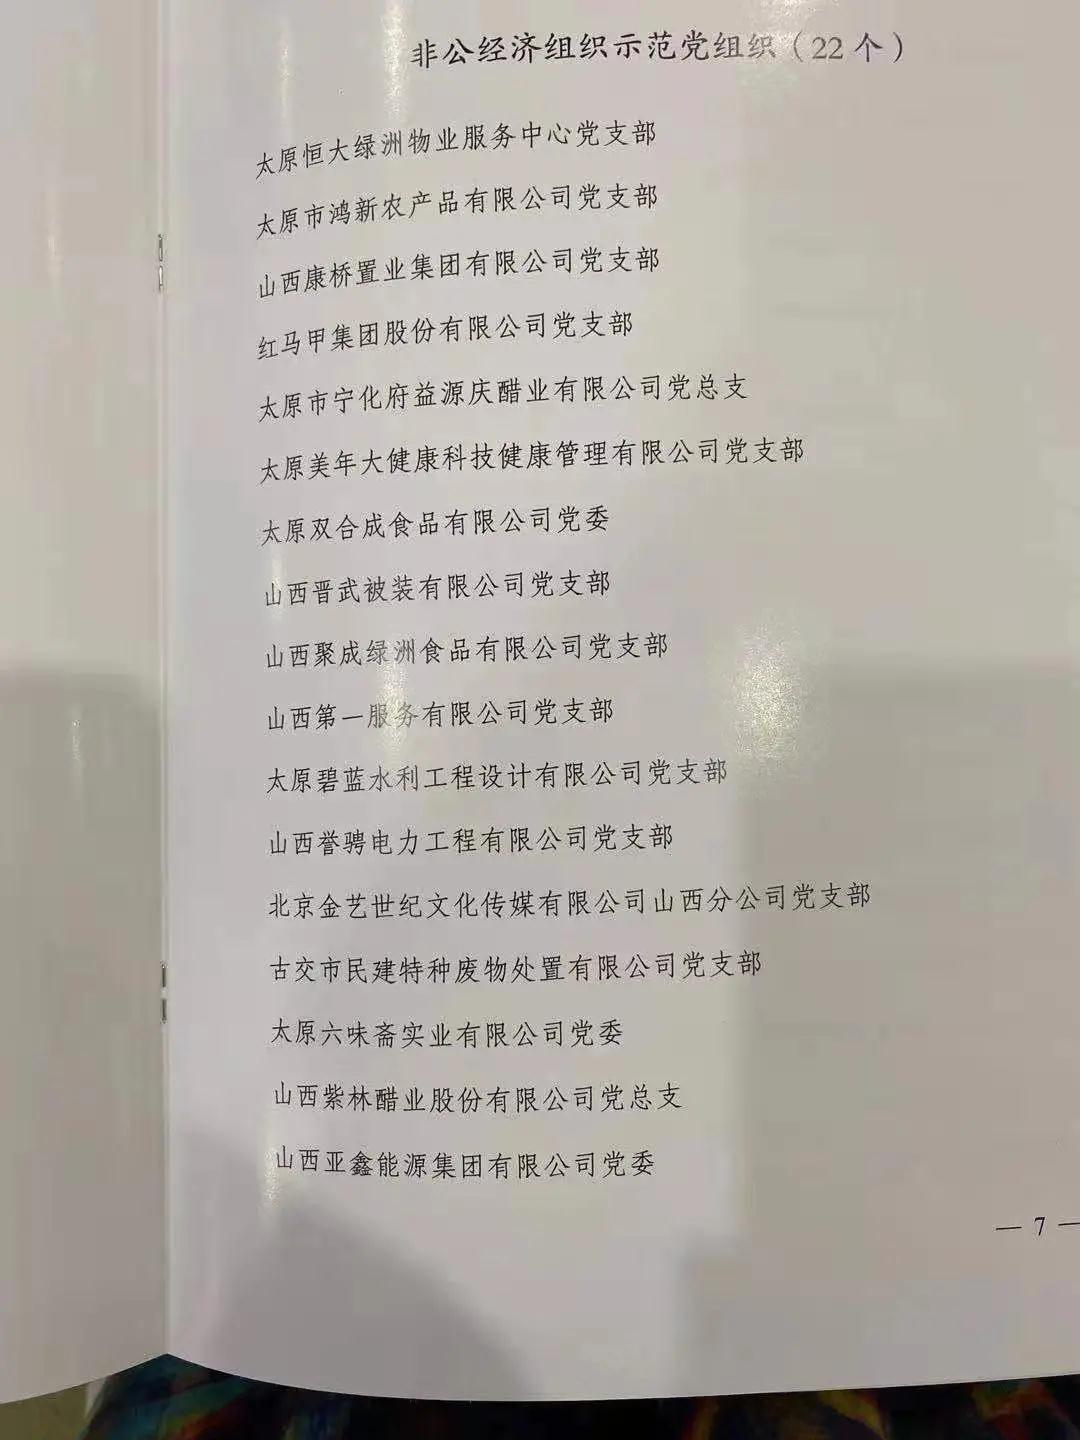 非公经济组织示范党组织（22个）
太原恒大绿洲物业服务中心党支部
太原市鸿新农产品有限公司党支部
山西康桥置业集团有限公司党支部
红马甲集团股份有限公司党支部
太原市宁化府益源庆醋业有限公司党总支
太原美年大健康科技健康管理有限公司党支部
太原双合成食品有限公司党委
山西晋武被装有限公司党支部
山西聚成绿洲食品有限公司党支部
山西第一服务有限公司党支部
太原碧蓝水利工程设计有限公司党支部
山西誉骋电力工程有限公司党支部
北京金艺世纪文化传媒有限公司山西分公司党支部
古交市民建特种废物处置有限公司党支部
太原六味斋实业有限公司党委
山西紫林醋业股份有限公司党总支
山西亚鑫能源集团有限公司党委
— 7 —